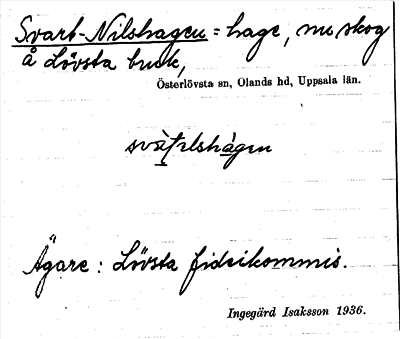 Svart-Nilshagen = hage, nu skog
å Lövsta bruk,
Österlövsta sn, Olands hd, Uppsala län.
Ägare: Lövsta fideikommis.
Ingegärd Isaksson 1936.